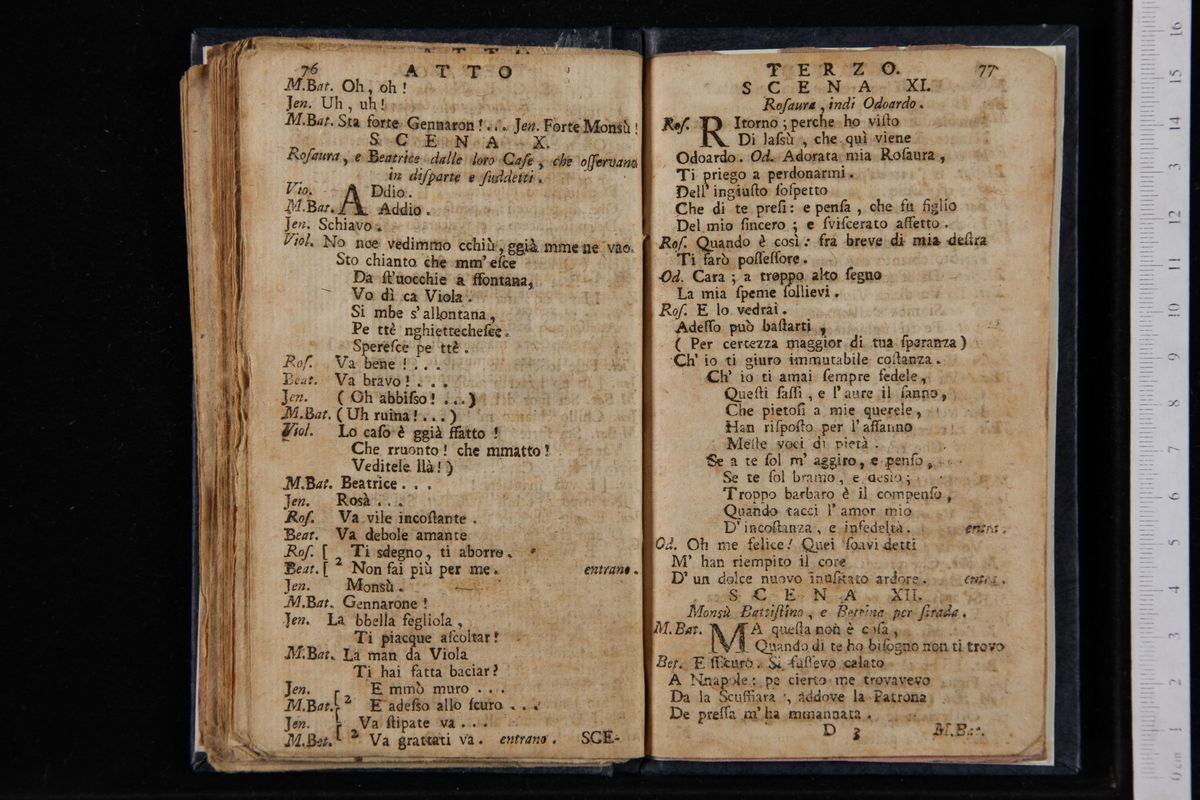 76 ATTO
M.Bat. Oh, oh!
Jen. Uh, uh!
M.Bat. Sta forte Gennaron!... Jen. Forte Monsù!
SCENA X.
Roſaura, e Beatrice dalle loro Caſe, che oſſervano
in diſparte e ſuddetti.
Vio. ADdio.
M.Bat. Addio.
Jen. Schiavo.
Viol. No nce vedimmo cchiù, ggià mme ne vao.
Sto chianto che mm'eſce
Da ſt'uocchie a ffontana,
Vo dì ca Viola.
Si mbe s'allontana,
Pe ttè nghiettecheſce.
Spereſce pe ttè.
Roſ. Va bene!...
Beat. Va bravo!...
Jen. (Oh abbiſso!...)
M.Bat. (Uh ruina!...)
Viol. Lo caſo è ggià ffatto!
Che rruonto! che mmatto!
Veditele llà!)
M.Bat. Beatrice...
Jen. Rosà...
Roſ. Va vile incoſtante.
Beat. Va debole amante
Roſ. [ Ti sdegno, ti aborro.
Beat. [ 2 Non fai più per me. entrano.
Jen. Monsù.
M.Bat. Gennarone!
Jen. La bbella fegliola,
Ti piacque aſcoltar?
M.Bat. La man da Viola
Ti hai fatta baciar?
Jen. E mmò muro...
M.Bat. 2 E adeſso allo ſcuro...
Jen. [ Va ſtipate va...
M.Bat. [ 2 Va grattati va. entrano. SCE-
TERZO. 77
SCENA XI.
Roſaura, indi Odoardo.
Roſ. RItorno; perche ho viſto
Di laſsù, che quì viene
Odoardo. Od. Adorata mia Roſaura,
Ti priego a perdonarmi.
Dell'ingiuſto ſoſpetto
Che di te preſi: e penſa, che fu figlio
Del mio ſincero; e ſviſcerato affetto.
Roſ. Quando è così: fra breve di mia deſtra
Ti farò poſſeſſore.
Od. Cara; a troppo alto ſegno
La mia ſpeme ſollievi.
Roſ. E lo vedrai.
Adeſſo può baſtarti,
(Per certezza maggior di tua ſperanza)
Ch'io ti giuro immutabile coſtanza.
Ch'io ti amai ſempre fedele,
Queſti ſaſſi, e l'aure il ſanno,
Che pietoſi a mie querele,
Han riſpoſto per l'affanno
Meſte voci di pietà.
Se a te ſol m'aggiro, e penſo,
Se te ſol bramo, e deſio;
Troppo barbaro è il compenſo,
Quando tacci l'amor mio
D'incoſtanza, e infedeltà. entra.
Od. Oh me felice! Quei ſoavi detti
M'han riempito il core
D'un dolce nuovo inuſitato ardore. entra.
SCENA XII.
Monsù Battiſtino, e Bettina per ſtrada.
M.Bat. MA queſta non è coſa,
Quando di te ho biſogno non ti trovo
Bet. E ſſcuro. Si fuſſevo calato
A Nnapole: pe cierto me trovavevo
Da la Scuffiara, addove la Patrona
De preſſa m'ha mmannata.
D 3 M.Bat.